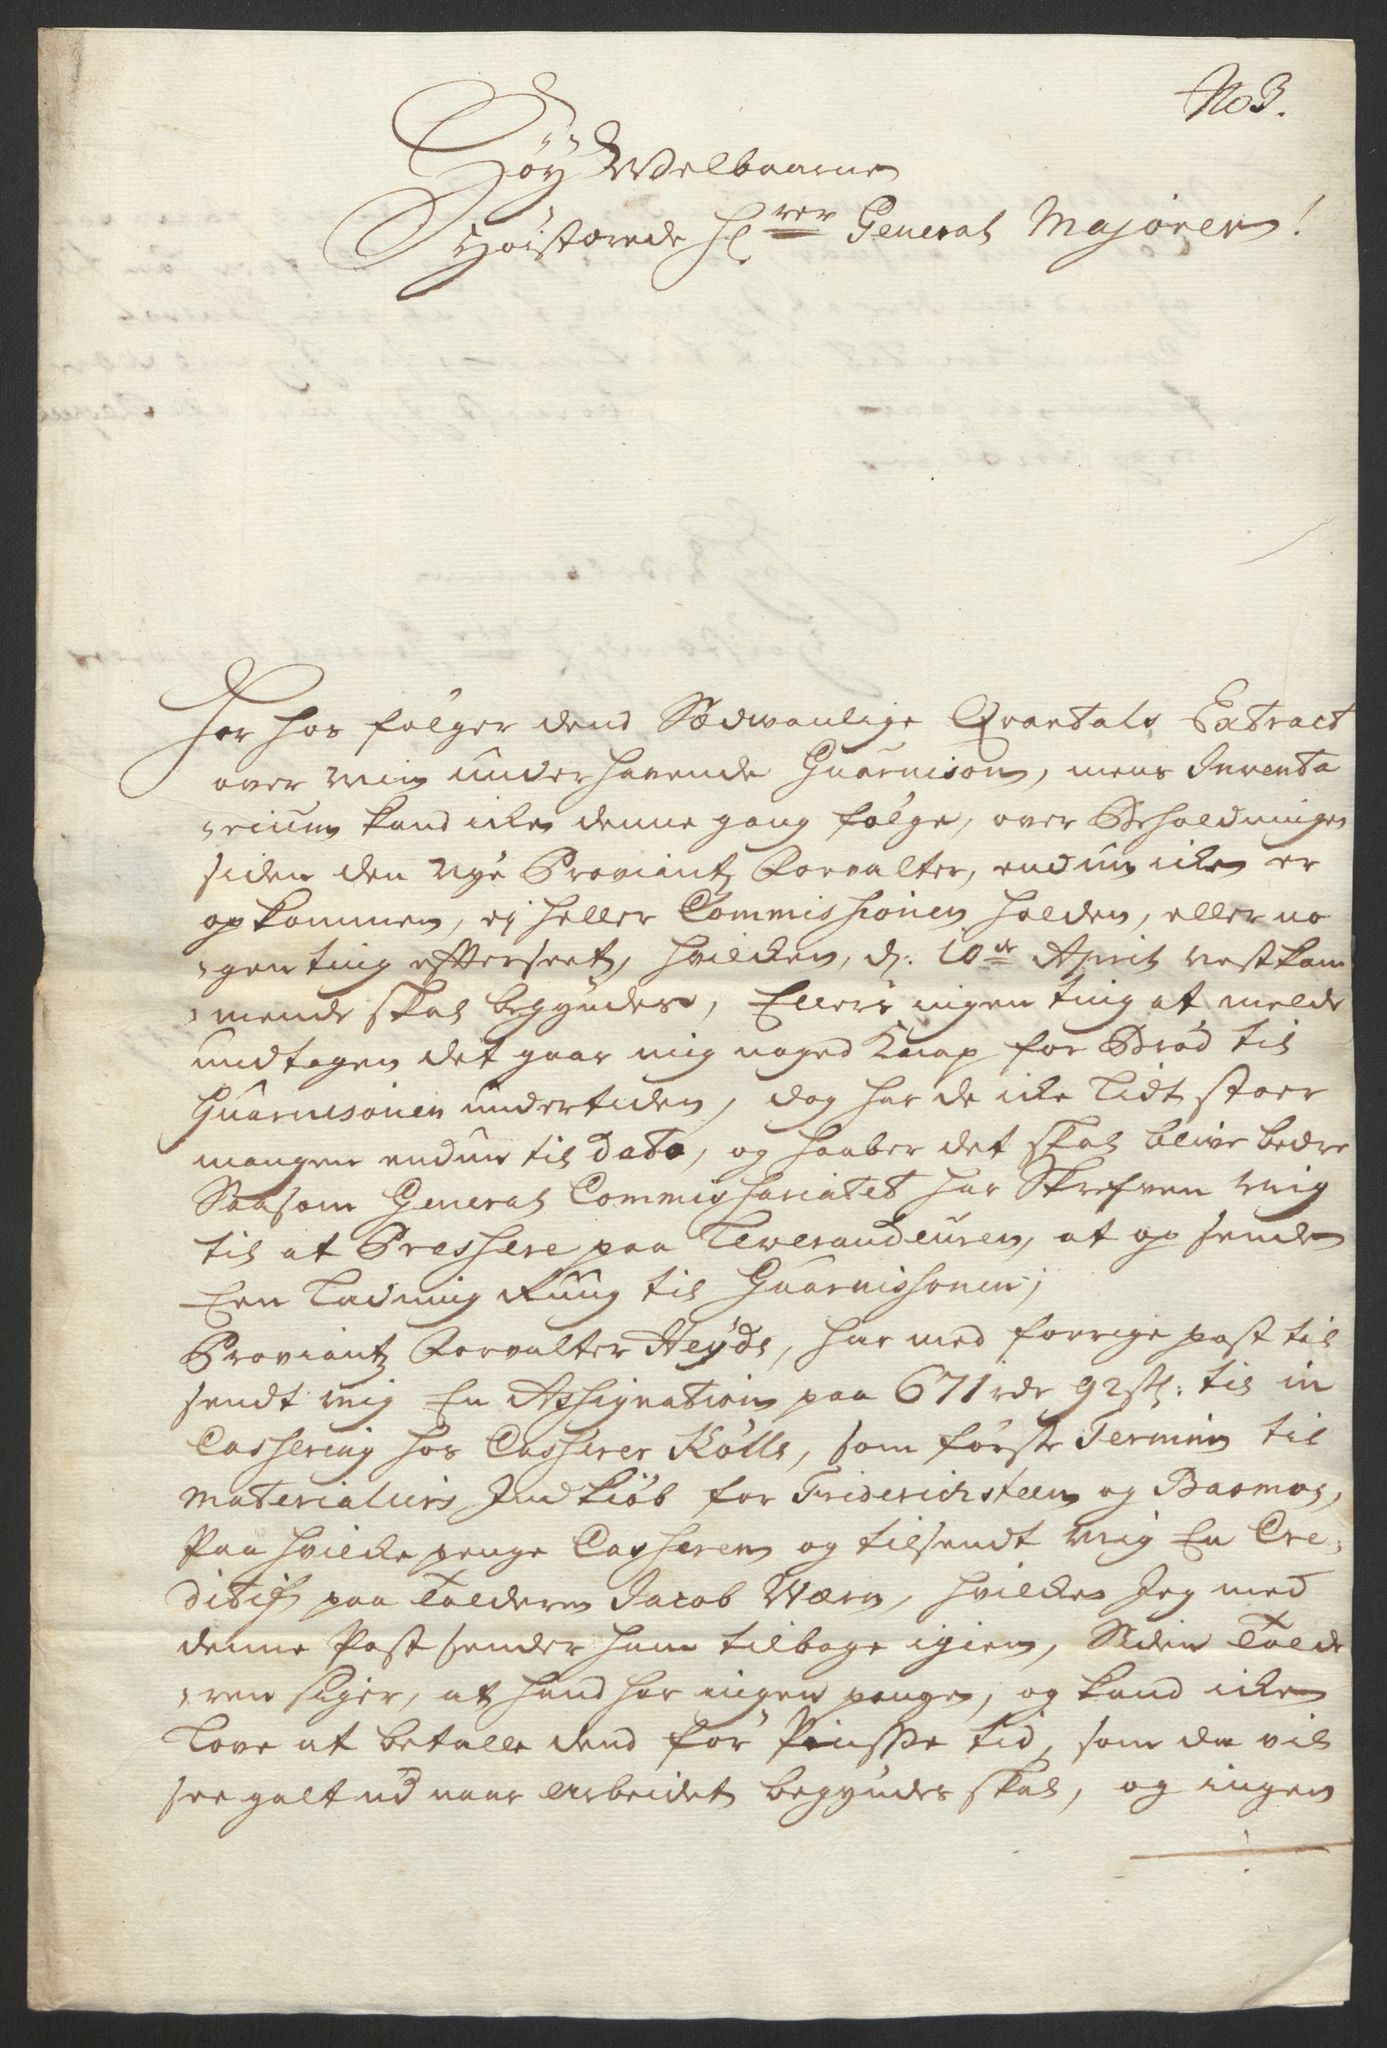 No 3.
Høy Welbaarne
Høistærede H rer General Majoren!
Her hos følger dend Sædwanlige Qvartals Extract
over min underhavende Guarnison, mens Inventa
-rium kand iken denne gang følge, over Beholdningen
siden den nye Proviantz Forvalter, endnu iken er
opkommen, ej heller Commishionen holden, eller no
-gen ting effterseet, hvilken, d: 10de April nestkom
-mende skal begyndes, Ellers ingen ting at melde
undtagen det gaar mig noged Knap for Brød til
Guarnisonen undertiden, dog har de ike Lidt stoer
mangen endnu til Dato, og haaber det skal blive bedre
Saasom General Commishariatet har Skrefven mig
til at Preshere paa Leverandeuren, at op senden
Een Ladning Rug til Guarnishonen;
Proviantz Forvalter Heyde, har med forrige post til
sendt mig En Ashignation paa 671 rde 92 sk: til in
Cashering hos Casherer Kølle, som første Termin til
Materialiers Indkiøb for Friderichsteen og Basmoe,
Paa hvilke penge Casheren og tilsendt mig En Cre-
ditif paa Tolderen Jacob Wærn, hvilken Jeg med
denne Post sender ham tilbage igien, Siden Tolde
-ren siger, at hand har ingen penge, og kand iken
Love at betalle dend før Pindsse tid, som da vil
see galt ud naar Arbeidet begyndes skal, og ingen